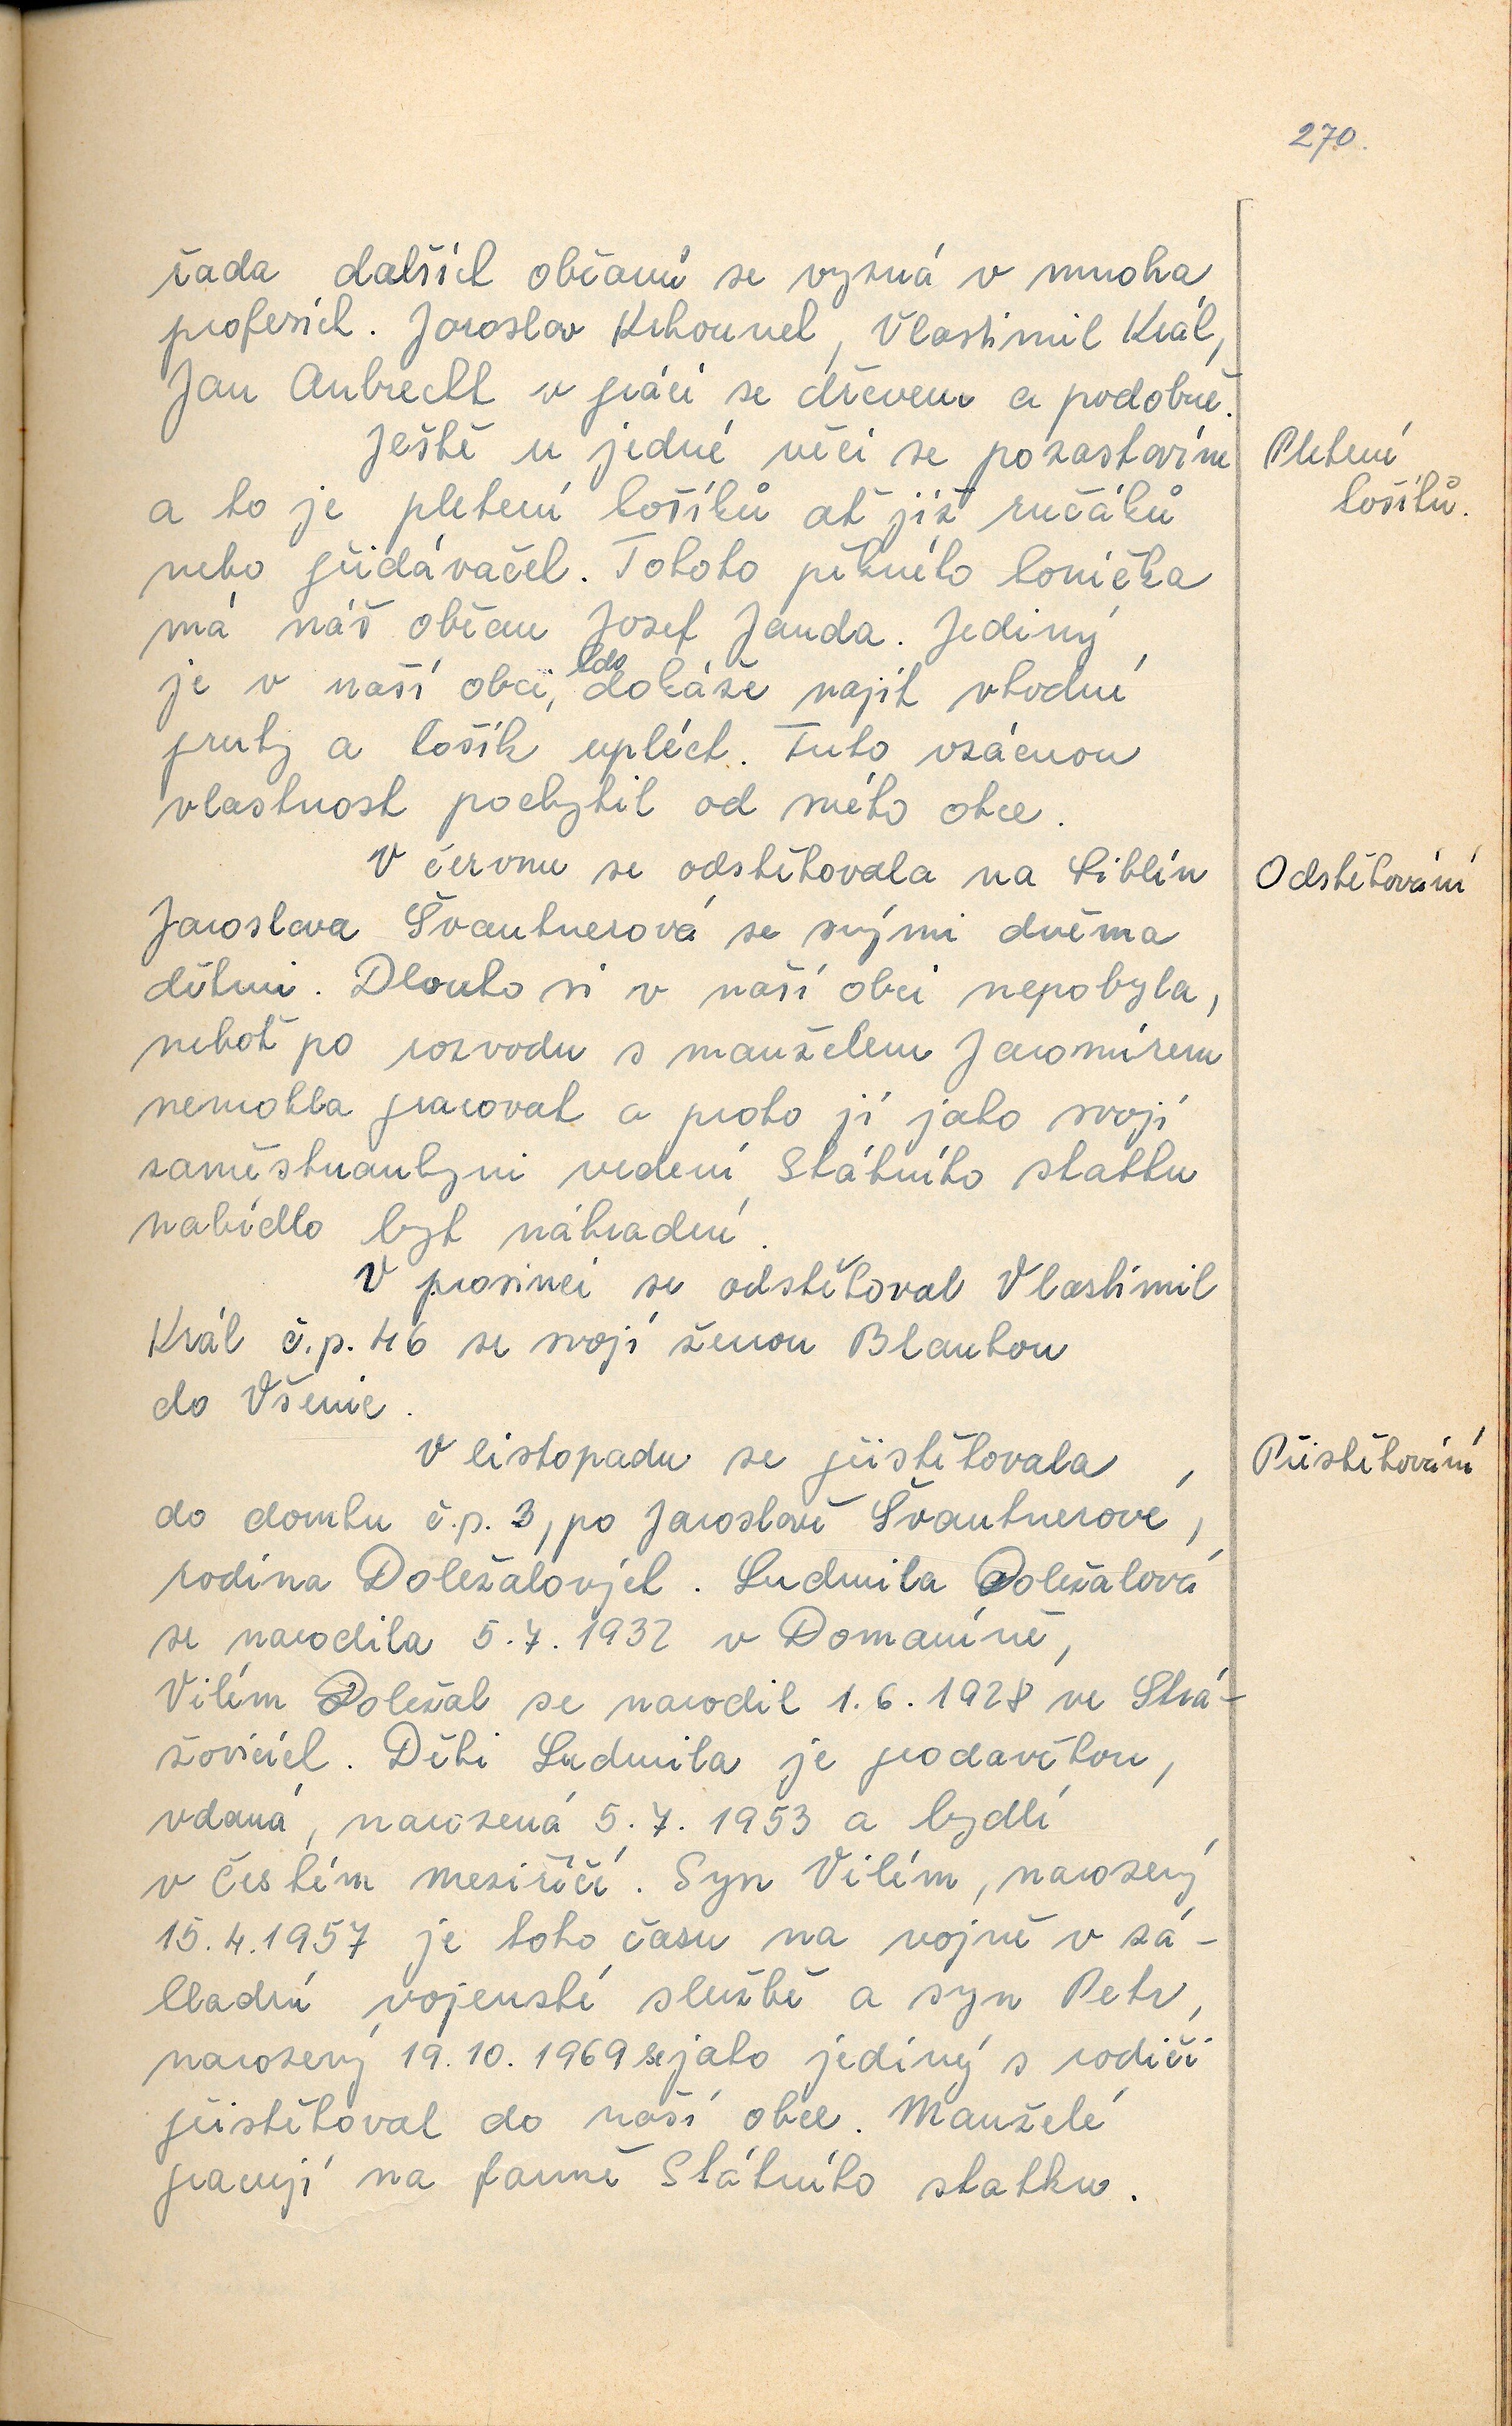 270.
řada dalších občanů se vyzná v mnoha
profesích. Jaroslav Krhounek, Vlastimil Král,
Jan Aubrecht v práci se dřevem a podobně.
Ještě u jedné věci se pozastavím
Pletení
košíků.
a to je pletení košíků ať již ručáků
nebo přidávaček. Tohoto pěkného koníčka
má náš občan Josef Janda. Jediný
je v naší obci, kdo dokáže najít vhodné
pruty a košík upléct. Tuto vzácnou
vlastnost pochytil od svého otce.
V červnu se odstěhovala na Liblín
Odstěhování
Jaroslava Švantnerová se svými dvěma
dětmi. Dlouho si v naší obci nepobyla,
neboť po rozvodu s manželem Jaromírem
nemohla pracovat a proto jí jako svojí
zaměstnankyni vedení Státního statku
nabídlo byt náhradní.
V prosinci se odstěhoval Vlastimil
Král č.p. 46 se svojí ženou Blankou
do Všenic.
V listopadu se přistěhovala
Přistěhování
do domku č.p. 3, po Jaroslavě Švantnerové,
rodina Doležalových. Ludmila Doležalová
se narodila 5.7. 1932 v Domaníně,
Vilém Doležal se narodil 1.6. 1928 ve Strá-
žovicích. Děti Ludmila je prodavčkou,
vdaná, narozená 5.7. 1953 a bydlí
v Českém Meziříčí. Syn Vilém, narozený
15.4.1957 je toho času na vojně v zá-
kladní vojenské službě a syn Petr,
narozený 19.10. 1969 se jako jediný s rodiči
přistěhoval do naší obce. Manželé
pracují na farmě Státního statku.